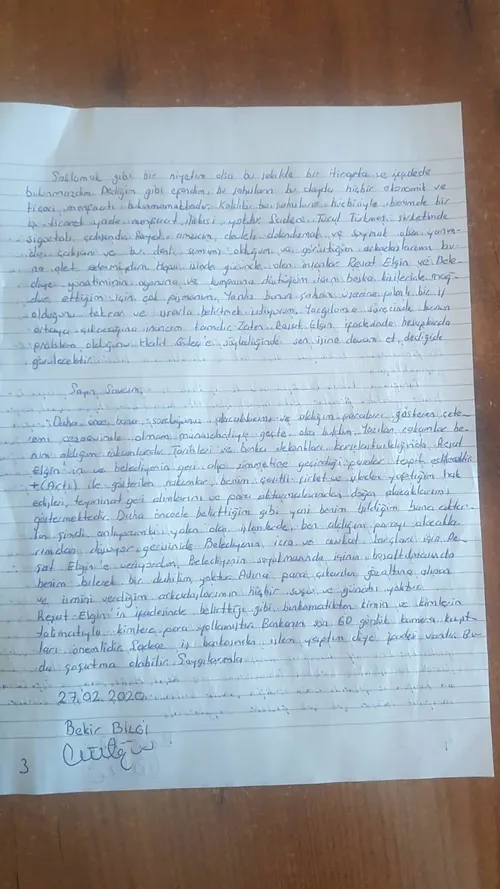 Saklamak gibi bir niyetim olsa bu şekilde bir ticarette ve ifadede
bulunmazdım. Dediğim gibi efendim, bu şahısların bu olayda hiçbir ekonomik ve
ticari menfaati bulunmamaktadır. Kaldıki bu şahısların hiçbiriyle benimde bir
iş ticaret yada menfaat ilişkisi yoktur. Sadece Yusuf Türkmen şirketinde
sigortalı çalışandı. Rayet amacım, devleti dolandırmak ve soymak olan yanım-
daki çalışanı ve bu denli samimi olduğum ve görüştüğüm arkadaşlarımı bu
na alet etmezdim. Hepsi işinde gücünde olan insanlar Reşat Elgin ve Bele
diye yönetiminin oyununa ve kumpasına düştüğüm için başka kişileride mağ
dur ettiğim için çok pişmanım. Yanlız bunun şahsım üzerine planlı bir iş
olduğunu tekrar ve ısrarla belirtmek istiyorum. Yargılama sürecinde bunun
ortaya çıkacağına inancım tamdır. Zaten Reşat Elgin ifadesinde hesaplarda
problem olduğunu Halit Güleç'e söylediğinde sen işine devam et dediğide
görülecektir.
Sayın Savcım,
Daha önce bana sorduğunuz alacaklarımı ve aldığım paraları gösteren çete-
lemi cezaevinde olmam münasebetiyle geçte olsa buldum. Yazılan rakamlar be-
nim aldığım rakamlardır. Tarihleri ve banka dekontları karşılaştırıldığında Reşat
Elgin'in ve belediyenin geri alıp zimmetine geçirdiği paralar tespit edilecektir
+(Artı) ile gösterilen rakamlar, benim çeşitli şirket ve işlerden yaptığım hak
edişler, teminat geri alımlarını ve para aktarmalarından doğan alacaklarımı
göstermektedir. Daha öncede belirttiğim gibi yani benim bildiğim bana aktarı-
lan şimdi anlıyorumki yalan olan işlemlerde, ben aldığım parayı alacakla
rımdan düşüyor gerisinide Belediyenin, icra ve avukat borçları için Re
şat Elgin'e veriyordum. Belediyenin soyulmasında işinin boşaltılmasında
benim bilerek bir dahilim yoktur. Adına para çıkarılan gözaltına alınan
ve ismini verdiğim arkadaşlarımın hiçbir suçu ve günahı yoktur.
Reşat Elgin'in ifadesinde belirttiği gibi bankamatikten kimin ve kimlerin
talimatıyla kimlere para yollamıştır. Bankanın son 60 günlük kamera kayıt-
ları önemlidir. Sadece iş bankasından işlem yaptım diye ifadesi vardır. Bu-
da şaşırtma olabilir. Saygılarımla
27.02.2020
Bekir BİLGİ
3